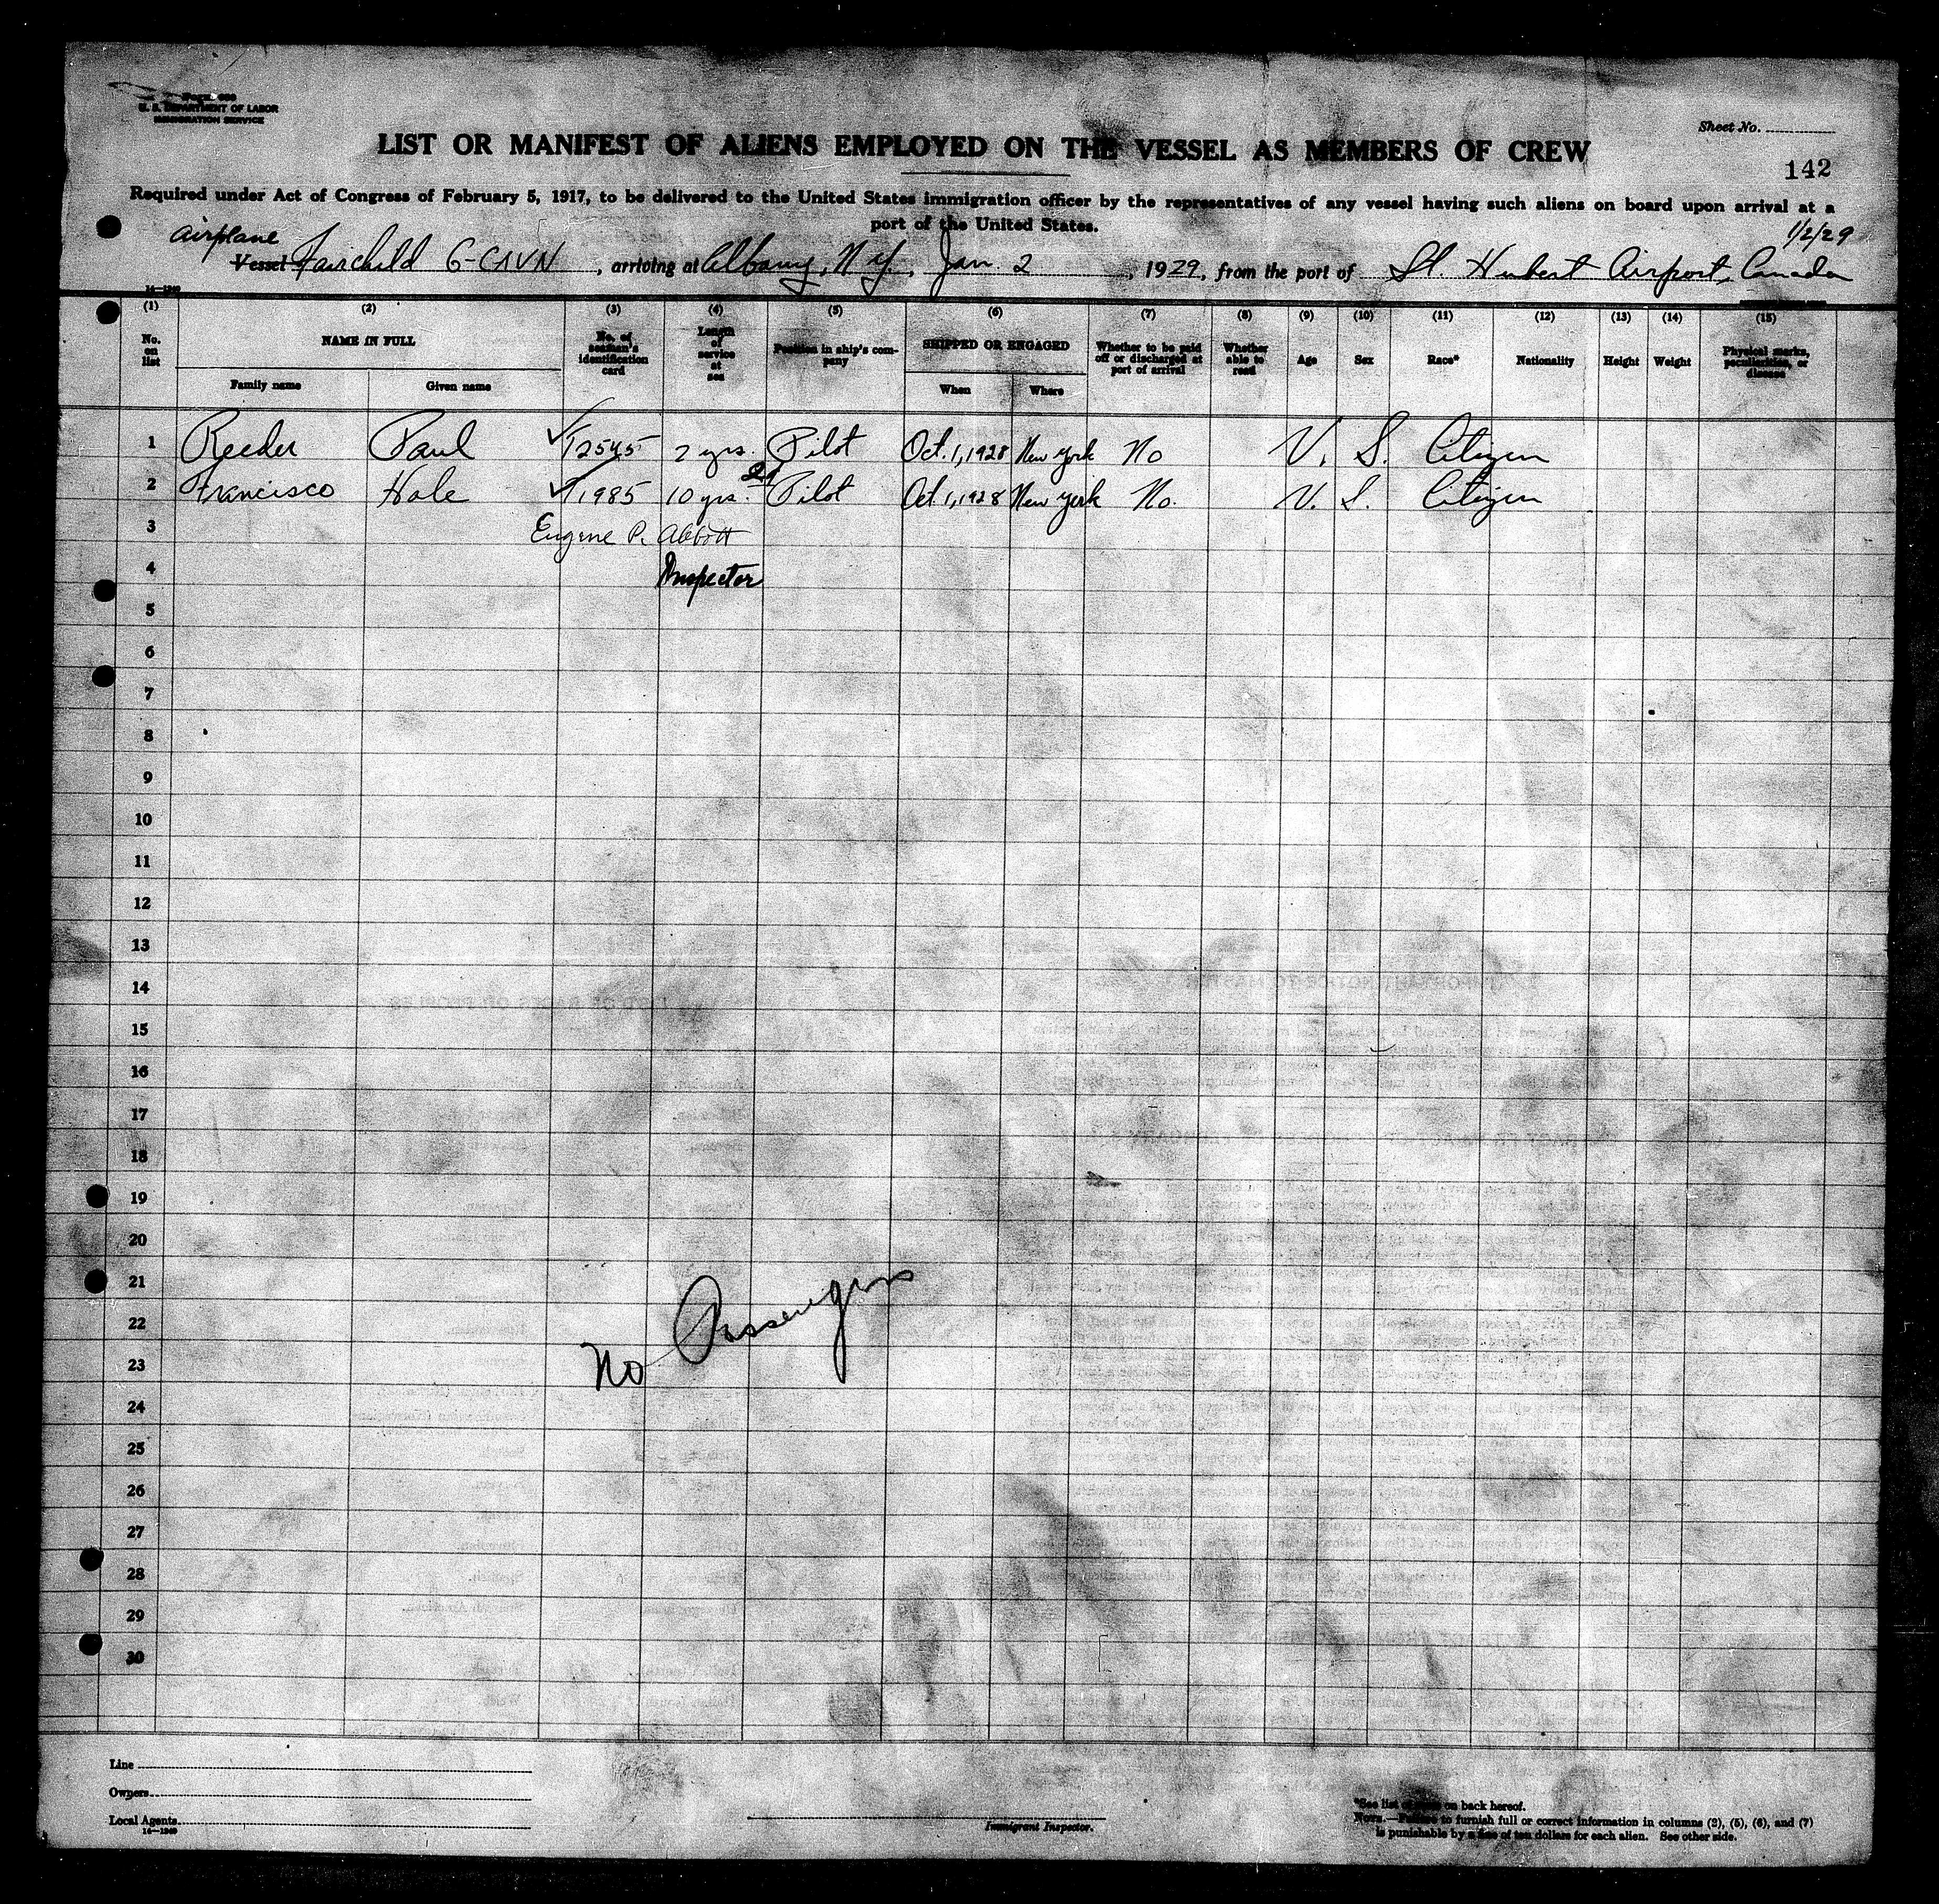 U. S. DEPARTMENT OF LABOR
IMMIGRATION SERVICE
Sheet No.
LIST OR MANIFEST OF ALIENS EMPLOYED ON THE VESSEL AS MEMBERS OF CREW
142
Required under Act of Congress of February 5, 1917, to be delivered to the United States immigration officer by the representatives of any vessel having such aliens on board upon arrival at a
port of the United States.
1/2/29
Airplane
Vessel Fairchild G-CAVN, arriving at Albany, N.Y., Jan. 2, 1929, from the port of St. Hubert Airport, Canada
14—1240
(1) (2) (3) (4) (5) (6) (7) (8) (9) (10) (11) (12) (13) (14) (15)
No. on list NAME IN FULL No. of seaman's identification card Length of service at sea Position in ship's company SHIPPED OR ENGAGED Whether to be paid off or discharged at port of arrival Whether able to read Age Sex Race* Nationality Height Weight Physical marks, peculiarities, or disease
Family name Given name When Where
1 Reeder Paul T2545 2 yrs. Pilot Oct. 1, 1928 New York No U. S. Citizen
2 Francisco Hale T1985 10 yrs. Pilot Oct. 1, 1928 New York No. U. S. Citizen
3 Eugene P. Abbott
4 Inspector
5
6
7
8
9
10
11
12
13
14
15
16
17
18
19
20
21
22
23
No Passengers
24
25
26
27
28
29
30
Line
Owners
Local Agents
14—1240
Immigrant Inspector.
*See list of races on back hereof.
NOTE.—Failure to furnish full or correct information in columns (2), (5), (6), and (7)
is punishable by a fine of ten dollars for each alien. See other side.